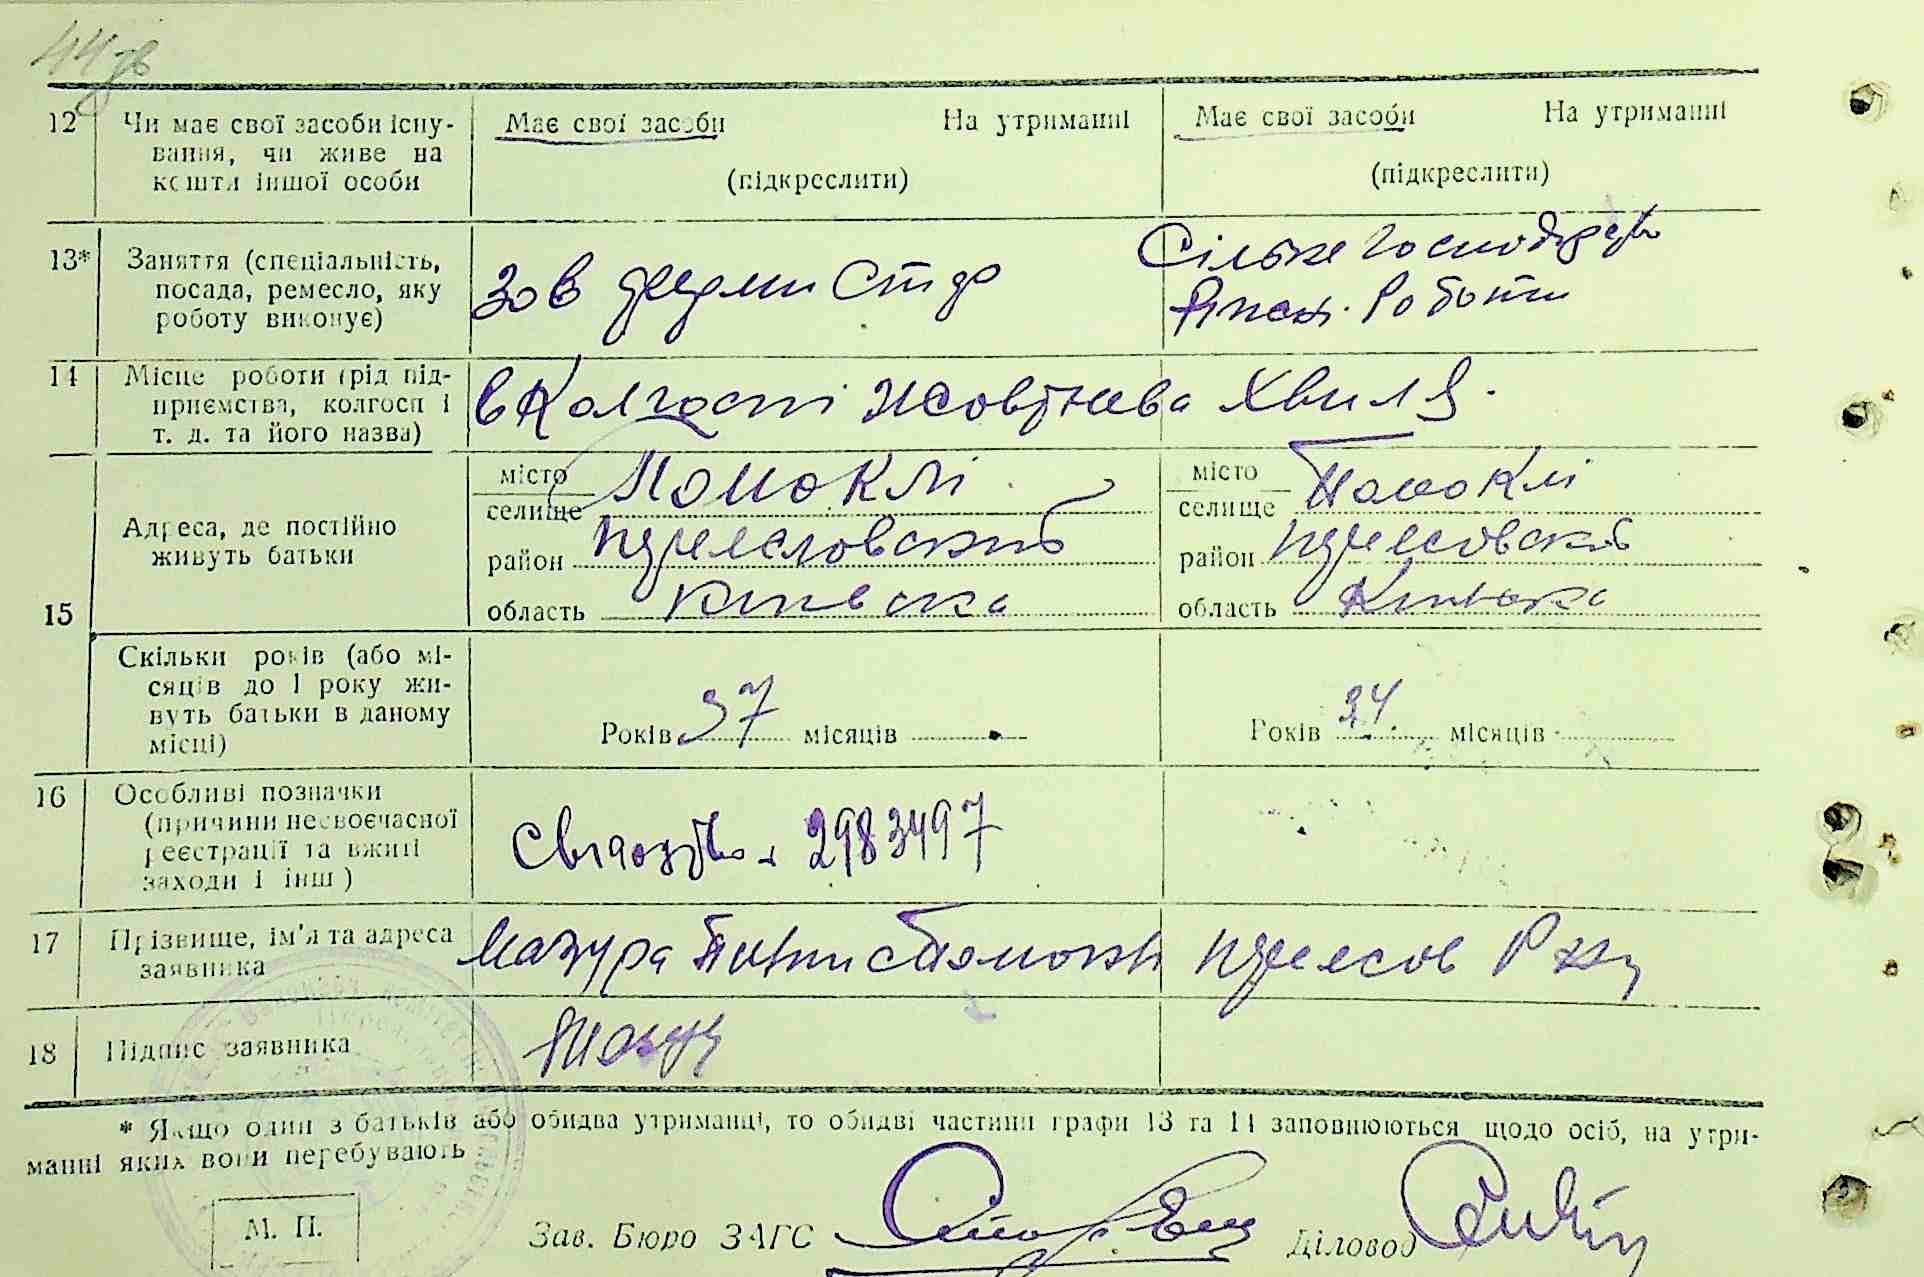 44зв
12 Чи має свої засоби існу- Має свої засоби На утриманні Має свої засоби На утриманні
вання, чи живе на
кошти іншої особи (підкреслити) (підкреслити)
13* Заняття (спеціальність, Сільске Господарство
посада, ремесло, яку Зов ферми
роботу виконує) Роботи
14 Місце роботи (рід під-
приємства, колгосп і в Колгоспі Жовтнева Хвиля.
т. д. та його назва)
15 Адреса, де постійно живуть батьки
місто Помоклі місто Помоклі
селище селище
район район
область Киевска область Киевска
Скільки років (або мі-
сяців до 1 року жи-
вуть батьки в даному
місці) Років 37 місяців Років 34 місяців
16 Особливі позначки
(причини несвоєчасної
реєстрації та вжиті
заходи і інш) 2983497
17 Прізвище, ім'я та адреса
заявника Мазура
18 Підпис заявника
* Якщо один з батьків або обидва утриманці, то обидві частини графи 13 та 14 заповнюються щодо осіб, на утри-
манні яких вони перебувають
М. П. Зав. Бюро ЗАГС Діловод